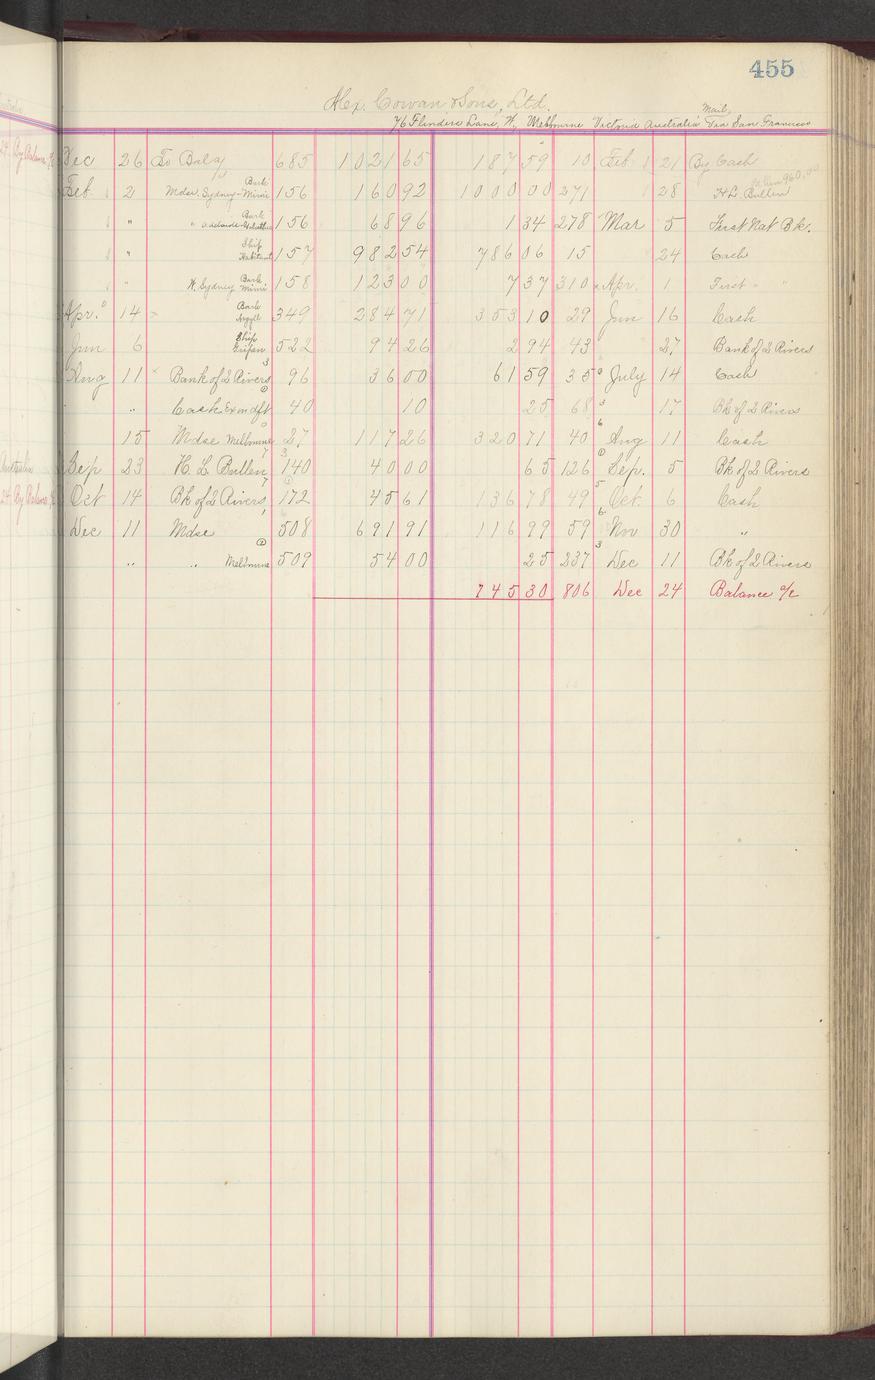 455
Alex. Cowan & Sons, Ltd.
76 Flinders Lane, W, Melbourne Victoria Australia Mail, Via San Francisco
Dec 26 To Balce 685 1021 65 187 59 10 Feb 21 By Cash
Feb. 2 Mdse. Sydney - Bark Mimi 156 160 92 1000 00 271 28 H L Bullen
" " Adelaide Bark 156 68 96 1 34 278 Mar 5 First Nat Bk.
" Ship Habitant 157 982 54 786 06 15 24 Cash
" N. Sydney Bark Mimi 158 123 00 7 37 310 Apr. 1 First " "
Apr. 14 Bark Argyll 349 284 71 353 10 29 Jun 16 Cash
Jun 6 Ship 522 94 26 2 94 43 27 Bank of 2 Rivers
Aug 11 Bank of 2 Rivers 96 36 00 61 59 35 July 14 Cash
" Cash Ex on dft 40 10 25 68 17 Bk of 2 Rivers
15 Mdse Melbourne 27 117 26 320 71 40 Aug 11 Cash
Sep 23 H. L Bullen 140 40 00 65 126 Sep. 5 Bk of 2 Rivers
Oct 14 Bk of 2 Rivers 172 45 61 136 78 49 Oct. 6 Cash
Dec 11 Mdse 508 691 91 116 99 59 Nov 30 "
" " Melbourne 509 54 00 25 237 Dec 11 Bk of 2 Rivers
745 30 806 Dec 24 Balance a/c